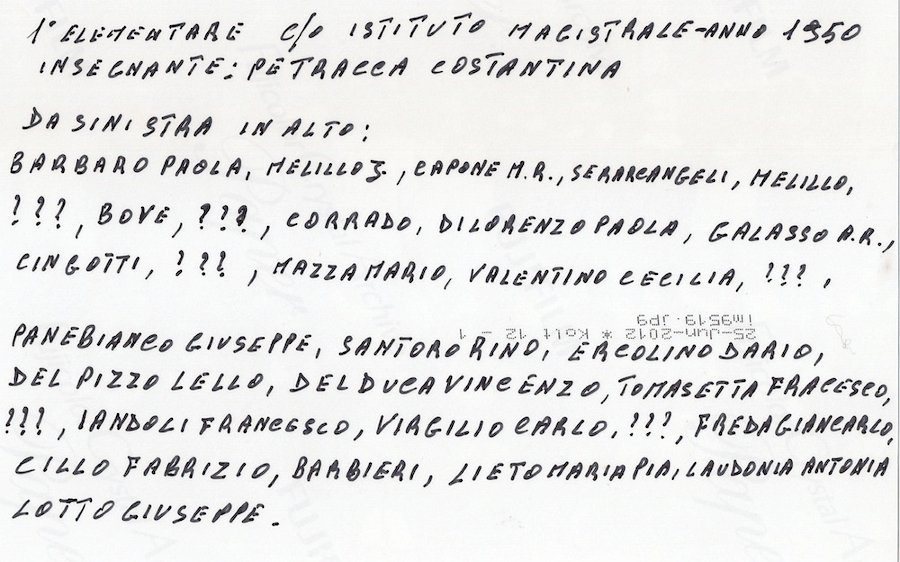 1° ELEMENTARE C/O ISTITUTO MAGISTRALE-ANNO 1950
INSEGNANTE: PETRACCA COSTANTINA
DA SINISTRA IN ALTO:
BARBARO PAOLA, MELILLO J., CAPONE M.R., SERARCANGELI, MELILLO,
???, BOVE, ???, CORRADO, DI LORENZO PAOLA, GALASSO A.R.,
CINGOTTI, ???, MAZZA MARIO, VALENTINO CECILIA, ???,
25-Jun-2012 * Kolt 12 - 1
im9519.JP9
PANEBIANCO GIUSEPPE, SANTORO RINO, ERCOLINO DARIO,
DEL PIZZO LELLO, DEL DUCA VINCENZO, TOMASETTA FRACESCO,
???, IANDOLI FRANCESCO, VIRGILIO CARLO, ???, FREDA GIANCARLO,
CILLO FABRIZIO, BARBIERI, LIETO MARIA PIA, LAUDONIA ANTONIA
LOTTO GIUSEPPE.